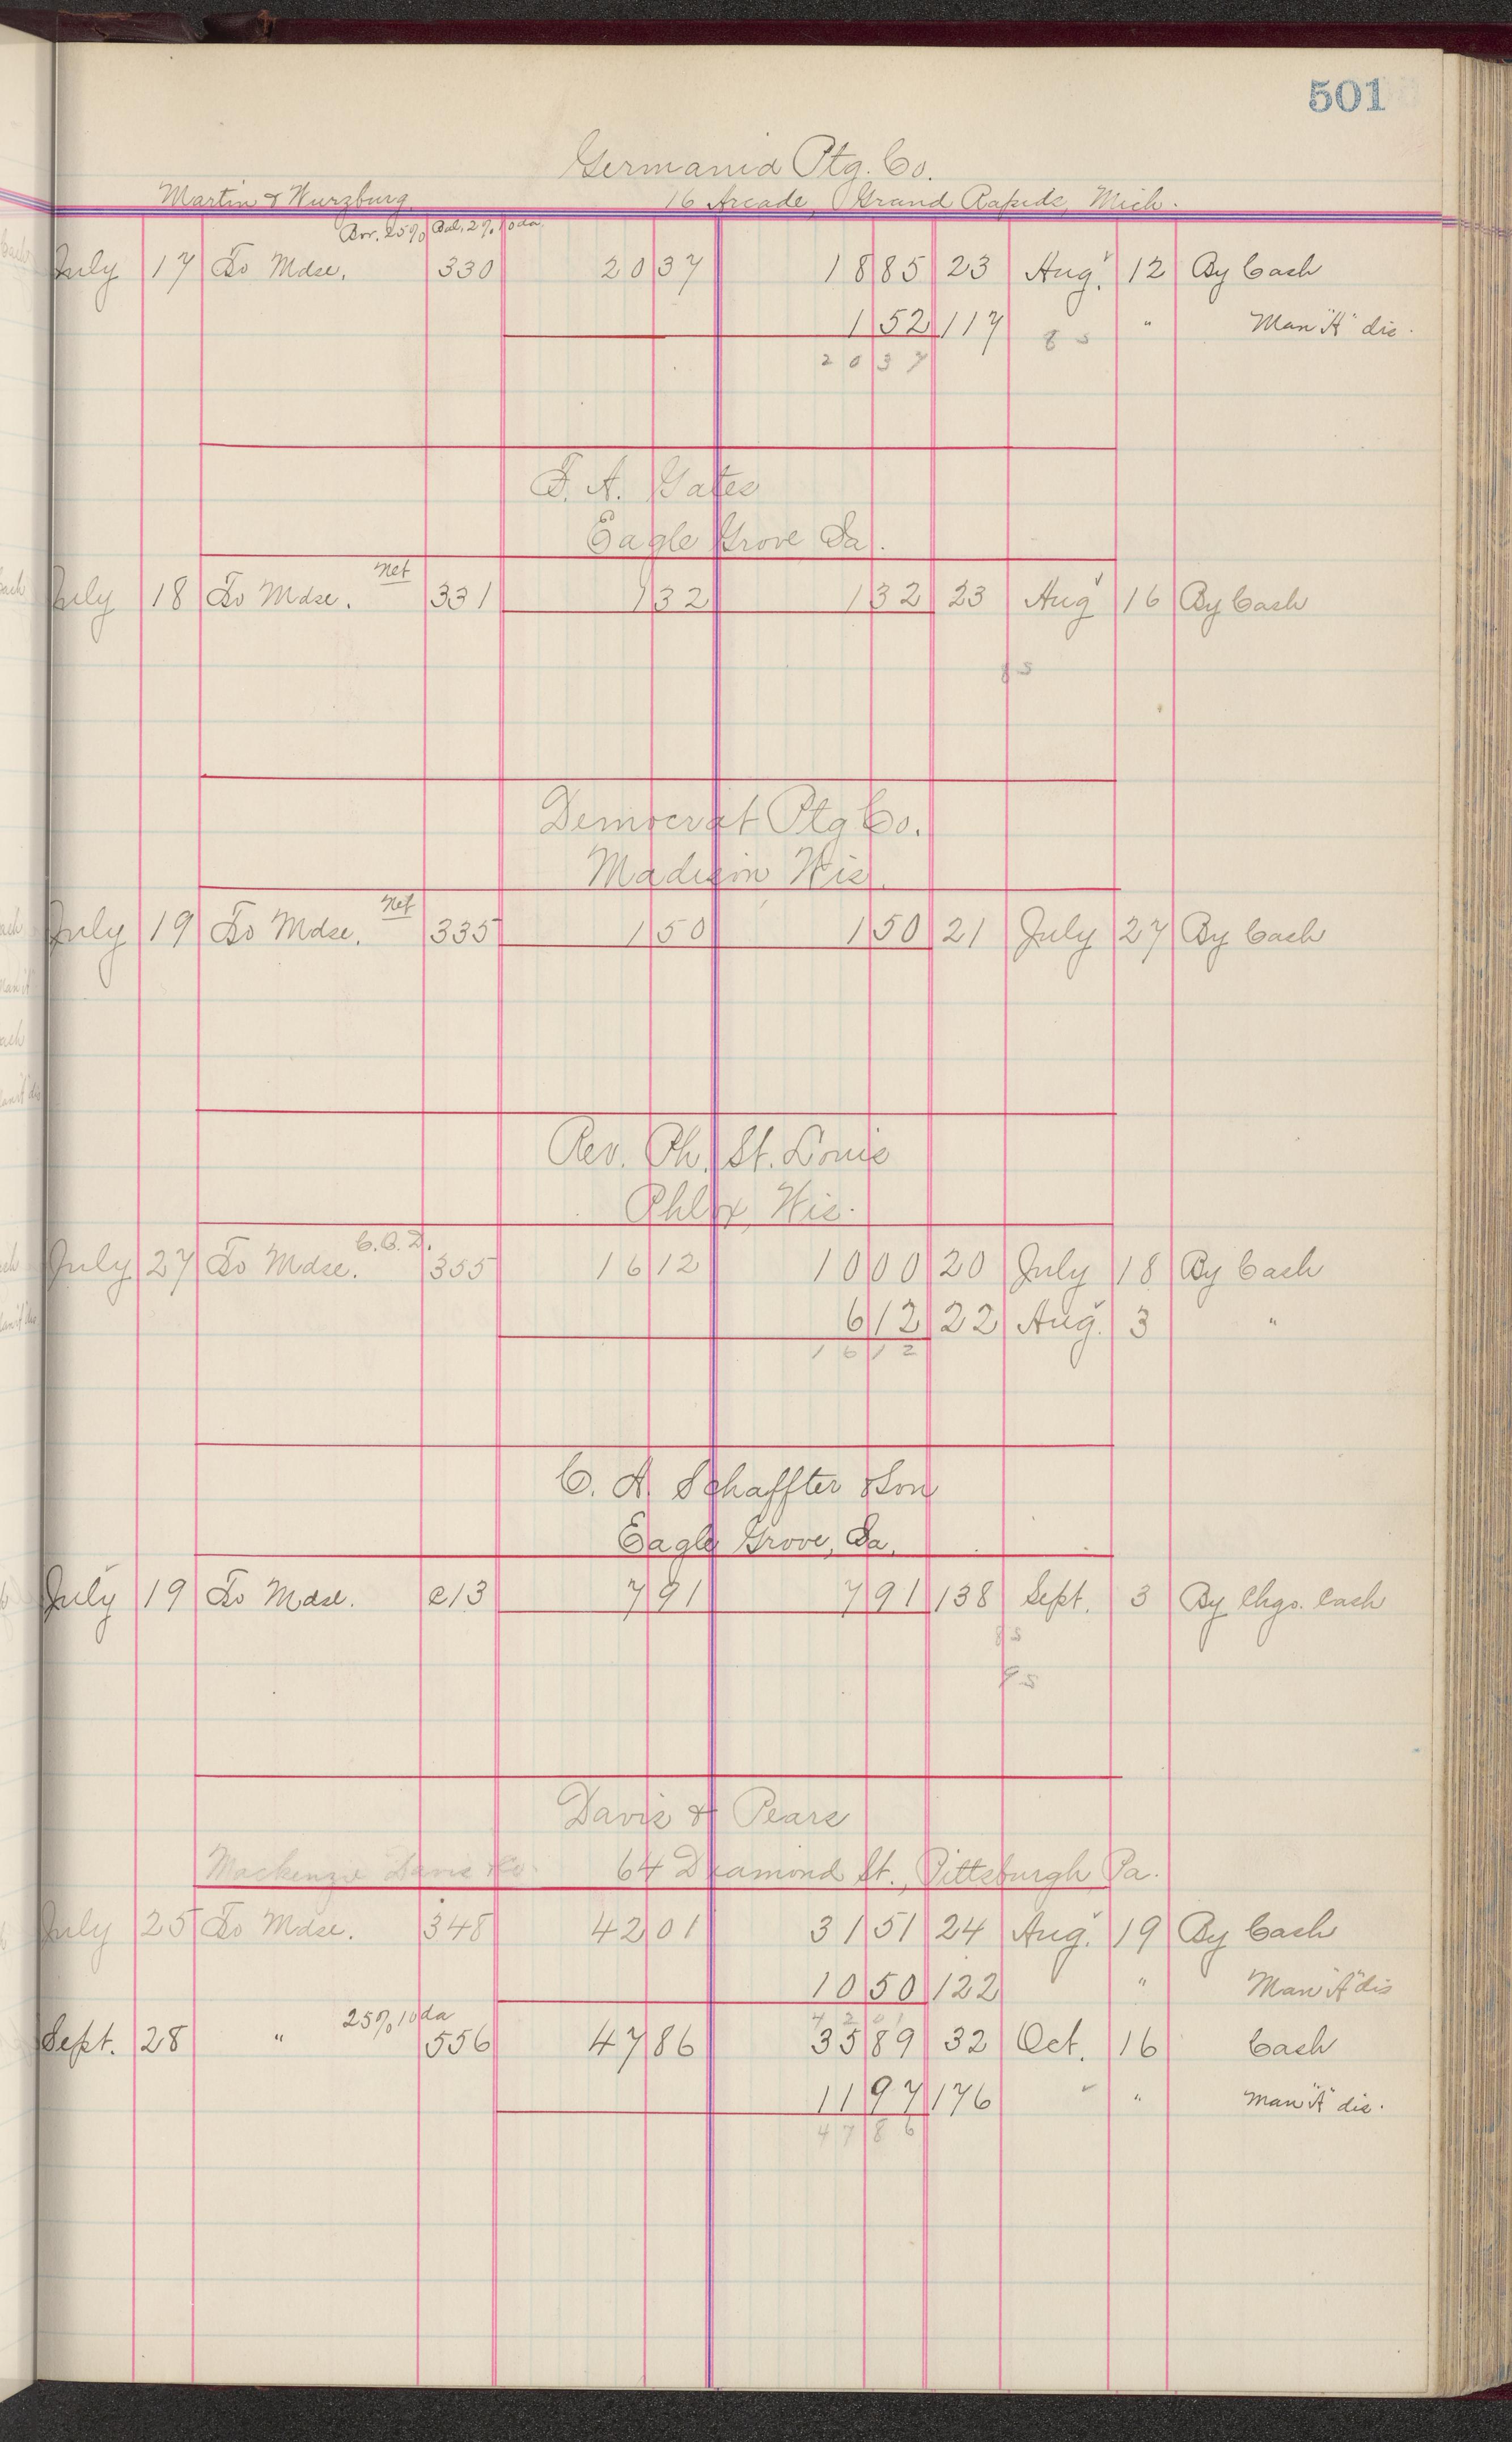 501
Germania Ptg. Co.
Martin & Wurzburg 16 Arcade, Grand Rapids, Mich.
Bor. 25% Bal, 2% 10 da
July 17 To Mdse. 330 20 37 18 85 23 Aug. 12 By Cash
1 52 117 " Man "A" dis.
8 5
20 37
F. A. Gates
Eagle Grove Ia.
Net
July 18 To Mdse. 331 1 32 1 32 23 Aug 16 By Cash
8 5
Democrat Ptg Co.
Madison Wis.
Net
July 19 To Mdse. 335 1 50 1 50 21 July 27 By Cash
Rev. Ph. St. Louis
Phlox, Wis.
C.O.D.
July 27 To Mdse. 355 16 12 10 00 20 July 18 By Cash
6 12 22 Aug. 3 "
16 12
C. A. Schaffter & Son
Eagle Grove, Ia.
July 19 To Mdse. e13 7 91 7 91 138 Sept. 3 By Chgo. Cash
8 5
9 5
Davis & Pears
Mackenzie Davis & Co. 64 Diamond St., Pittsburgh Pa.
July 25 To Mdse. 348 42 01 31 51 24 Aug. 19 By Cash
10 50 122 " Man "A" dis
42 01
25% 10 da
Sept. 28 " 556 47 86 35 89 32 Oct. 16 Cash
11 97 176 " Man "A" dis.
47 86